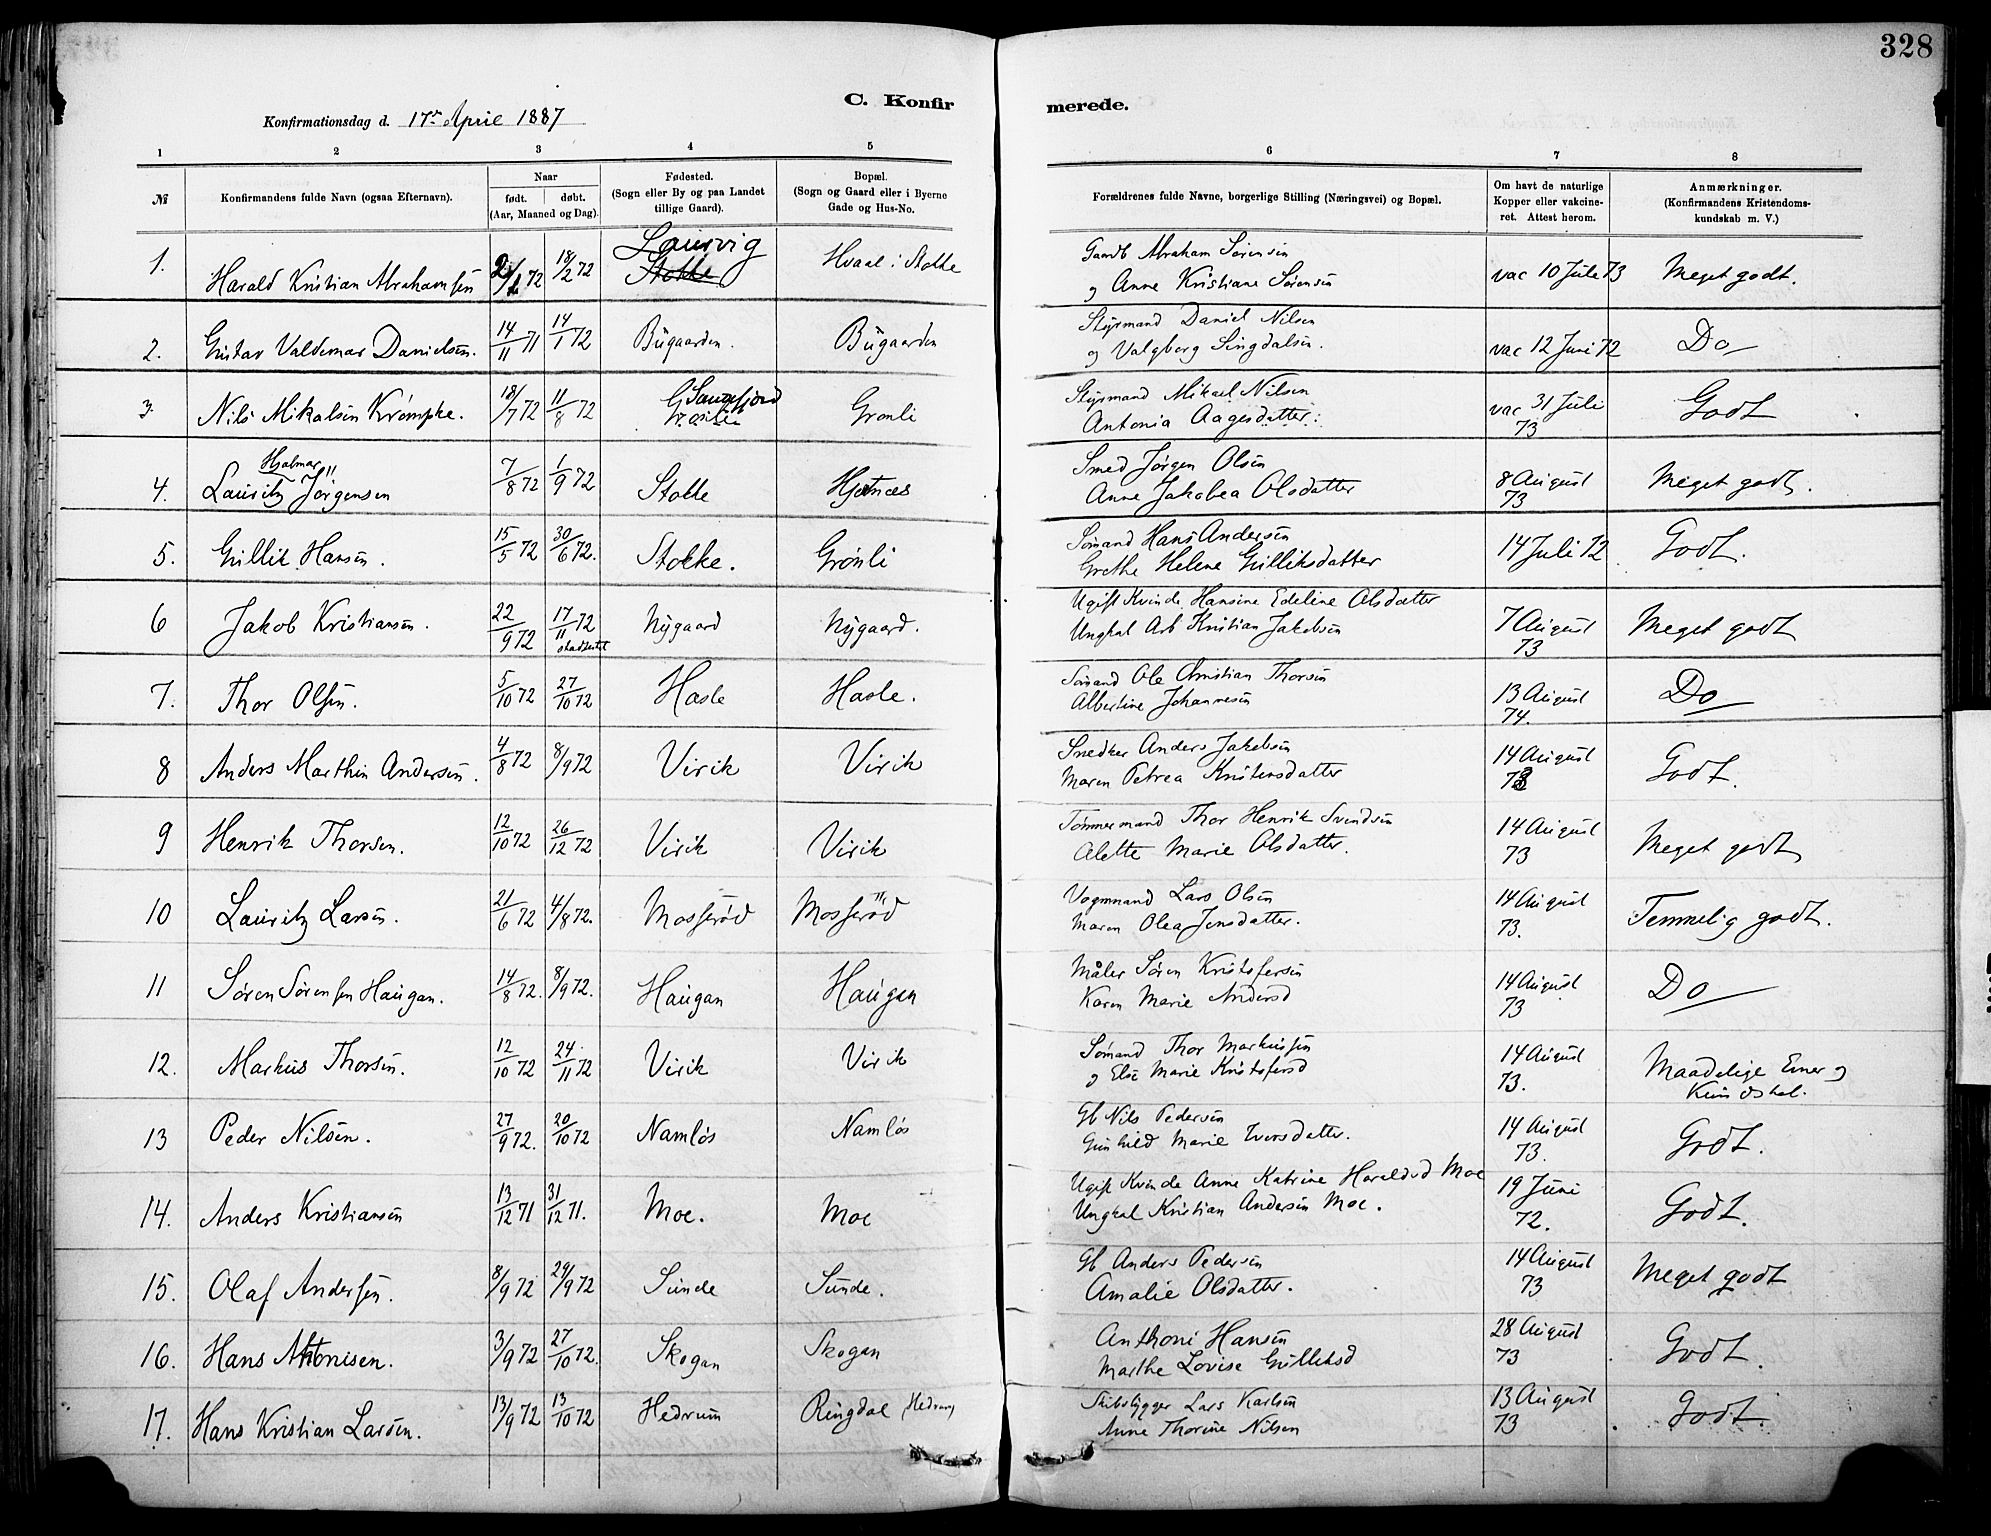 328
C. Konfirmerede.
Konfirmationsdag d. 17de April 1887
1 2 3 4 5 6 7 8
№ Konfirmandens fulde Navn (ogsaa Efternavn). Naar født. døbt. (Aar, Maaned og Dag). Fødested. (Sogn eller By og paa Landet tillige Gaard). Bopæl. (Sogn og Gaard eller i Byerne Gade og Hus-No. Forældrenes fulde Navne, borgerlige Stilling (Næringsvei) og Bopæl. Om havt de naturlige Kopper eller vakcineret. Attest herom. Anmærkninger. (Konfirmandens Kristendomskundskab m. V.)
1. Harald Kristian Abrahamsen 2/1 72 18/2 72 Laurvig Stokke Hvaal i Stokke Gaardb Abraham Sørensen
og Anne Kristiane Sørensen vac 10 Juli 73 Meget godt.
2. Gustav Valdemar Danielsen. 14/11 71 14/1 72 Bugaarden. Bugaarden Styrmand Daniel Nilsen
og Valgborg Singdalsen. vac 12 Juni 72 Do
3. Nils Mikalsen Krømpke. 18/7 72 11/8 72 Sandefjord Grønli Styrmand Mikael Nilsen
Antonia Aagesdatter. vac 31 Juli 73 Godt
4. Lauritz Hjalmar Jörgensen 7/8 72 1/9 72 Stokke Hjertnæs Smed Jørgen Olsen
Anne Jakobea Olsdatter 8 August 73 Meget godt.
5. Gullik Hansen. 15/5 72 30/6 72. Stokke. Grønli Sømand Hans Andersen
Grethe Helene Gulliksdatter 14 Juli 72 Godt.
6 Jakob Kristiansen. 22/9 72 17/11 72 Nygaard Nygaard. Ugift Kvinde Hansine Edeline Olsdatter
Ungkal Arb Kristian Jakobsen 7 August 73 Meget godt
7. Thor Olsen. 5/10 72 27/10 72 Hasle Hasle. Sømand Ole Christian Thorsen
Albertine Johannesen 13 August 74. Do
8 Anders Marthin Andersen. 4/8 72 8/9 72 Virik Virik Snedker Anders Jakobsen
Maren Petrea Kristensdatter 14 August 73 Godt.
9 Henrik Thorsen. 12/10 72 26/12 72 Virik Virik Tømmermand Thor Henrik Svendsen
Alette Marie Olsdatter. 14 August 73 Meget godt
10 Lauritz Larsen. 21/6 72 4/8 72. Mosserød Mosserød Vognmand Lars Olsen
Maren Olea Jensdatter. 14 August 73. Temmelig godt.
11 Søren Sørensen Haugan. 14/8 72. 8/9 72. Haugan Haugan Måler Søren Kristofersen
Karen Marie Andersd 14 August 73 Do
12. Markus Thorsen. 12/10 72 24/11 72 Virik Virik Sømand Thor Markussen
og Else Marie Kristofersd 14 August 73. Maadelige Evner og
Kundskab.
13 Peder Nilsen. 27/9 72. 20/10 72 Namløs Namløs Gb Nils Pedersen
Gunhild Marie Iversdatter. 14 August 73. Godt.
14. Anders Kristiansen 13/12 71 31/12 71. Moe. Moe Ugift Kvinde Anne Katrine Haraldsd Moe
Ungkal Kristian Andersen Moe. 19 Juni 72. Godt.
15. Olaf Andersen. 8/9 72 29/9 72 Sunde Sunde. Gb Anders Pedersen
Amalie Olsdatter. 14 August 73 Meget godt
16. Hans Antonisen. 3/9 72 27/10 72. Skogan Skogan Anthoni Hansen
Marthe Lovise Gulliksd 28 August 73 Godt.
17. Hans Kristian Larsen. 13/9 72 13/10 72 Hedrum Ringdal (Hedrum) Skibsbygger Lars Karlsen
Anne Thorine Nilsen 13 August 73 Godt.